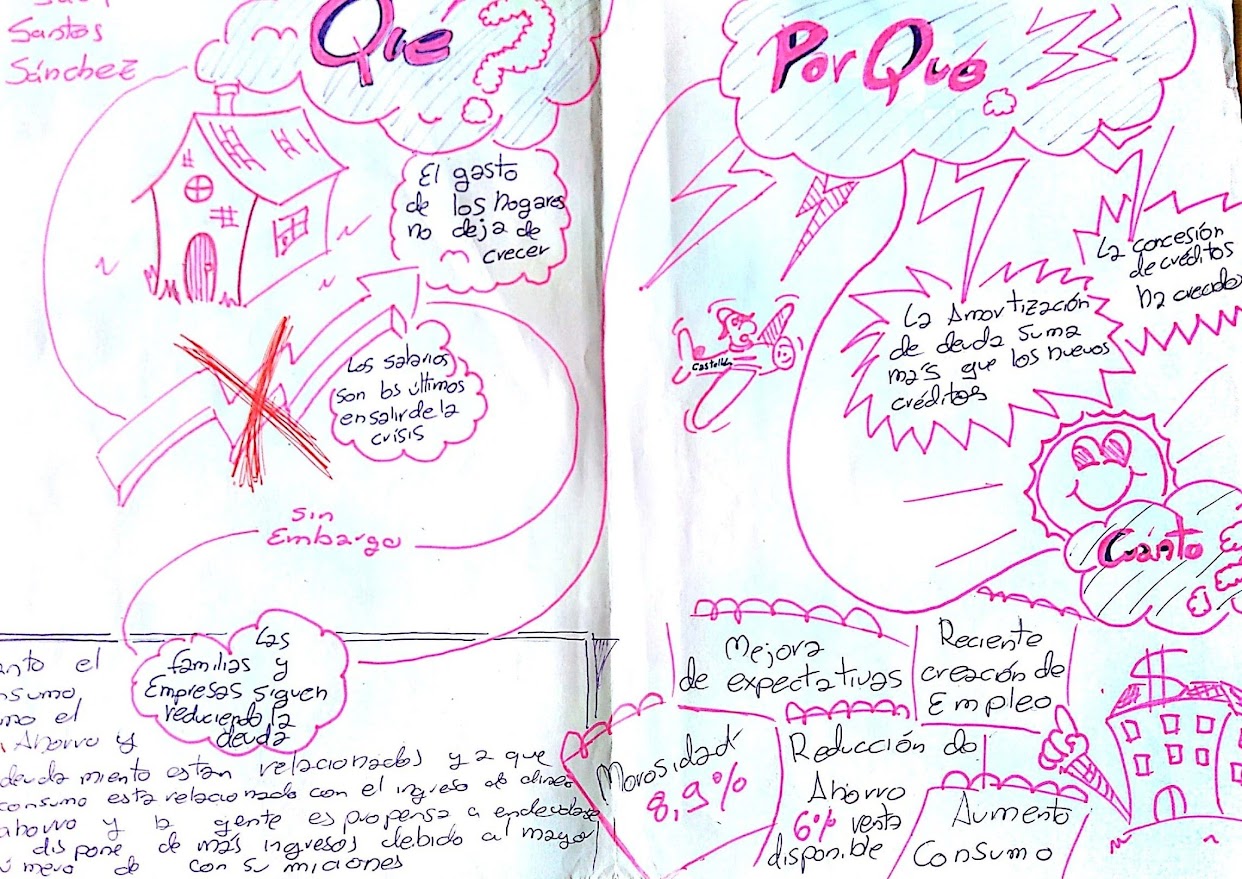 Santos
Sánchez
Que
?
El gasto
de los hogares
no deja de
crecer
Los salarios
son los últimos
en salir de la
crisis
Sin
Embargo
Las
familias y
Empresas siguen
reduciendo la
deuda
el
Ahorro y
están relacionados ya que
consumo esta relacionado con el ingreso de dinero
ahorro y la gente es propensa a endeudase
dispone de más ingresos debido al mayor
de con su miciones
Por Qué
La concesión
de créditos
ha crecido
La Amortización
de deuda suma
más que los nuevos
créditos
Castellde
Cuánto
Mejora
de expectativas
Reciente
creación de
Empleo
Morosidad
8,9%
Reducción do
Ahorro
6% venta
disponible
Aumento
Consumo
$